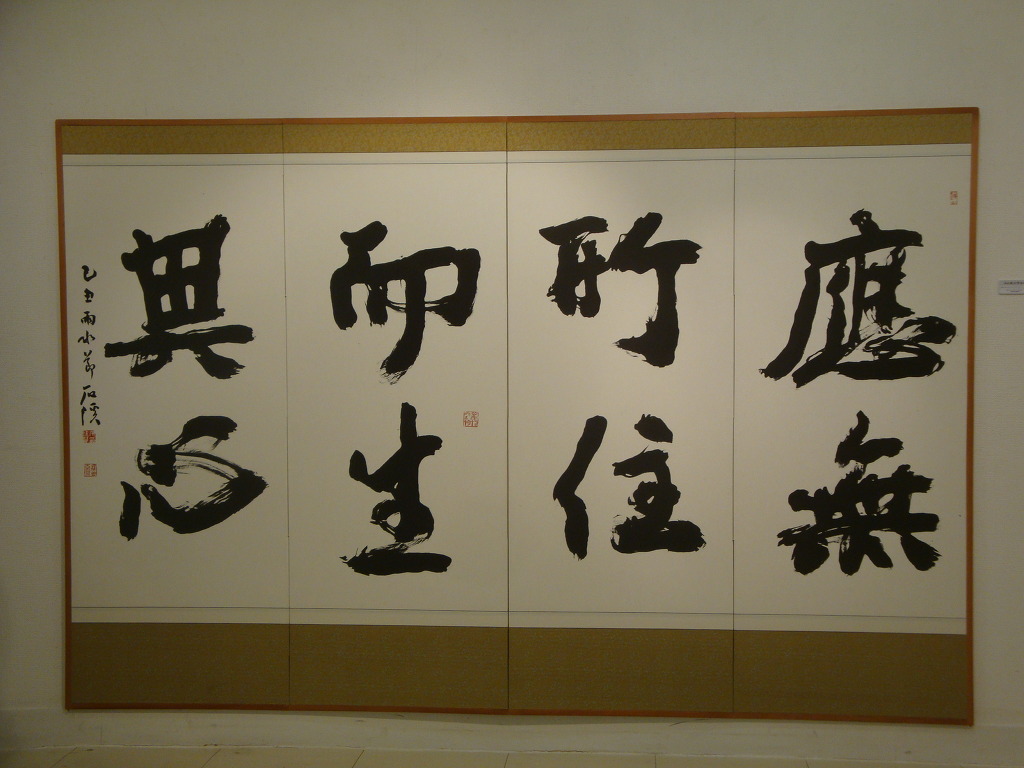 應無
所住
而生
其心
乙丑雨水節石溪